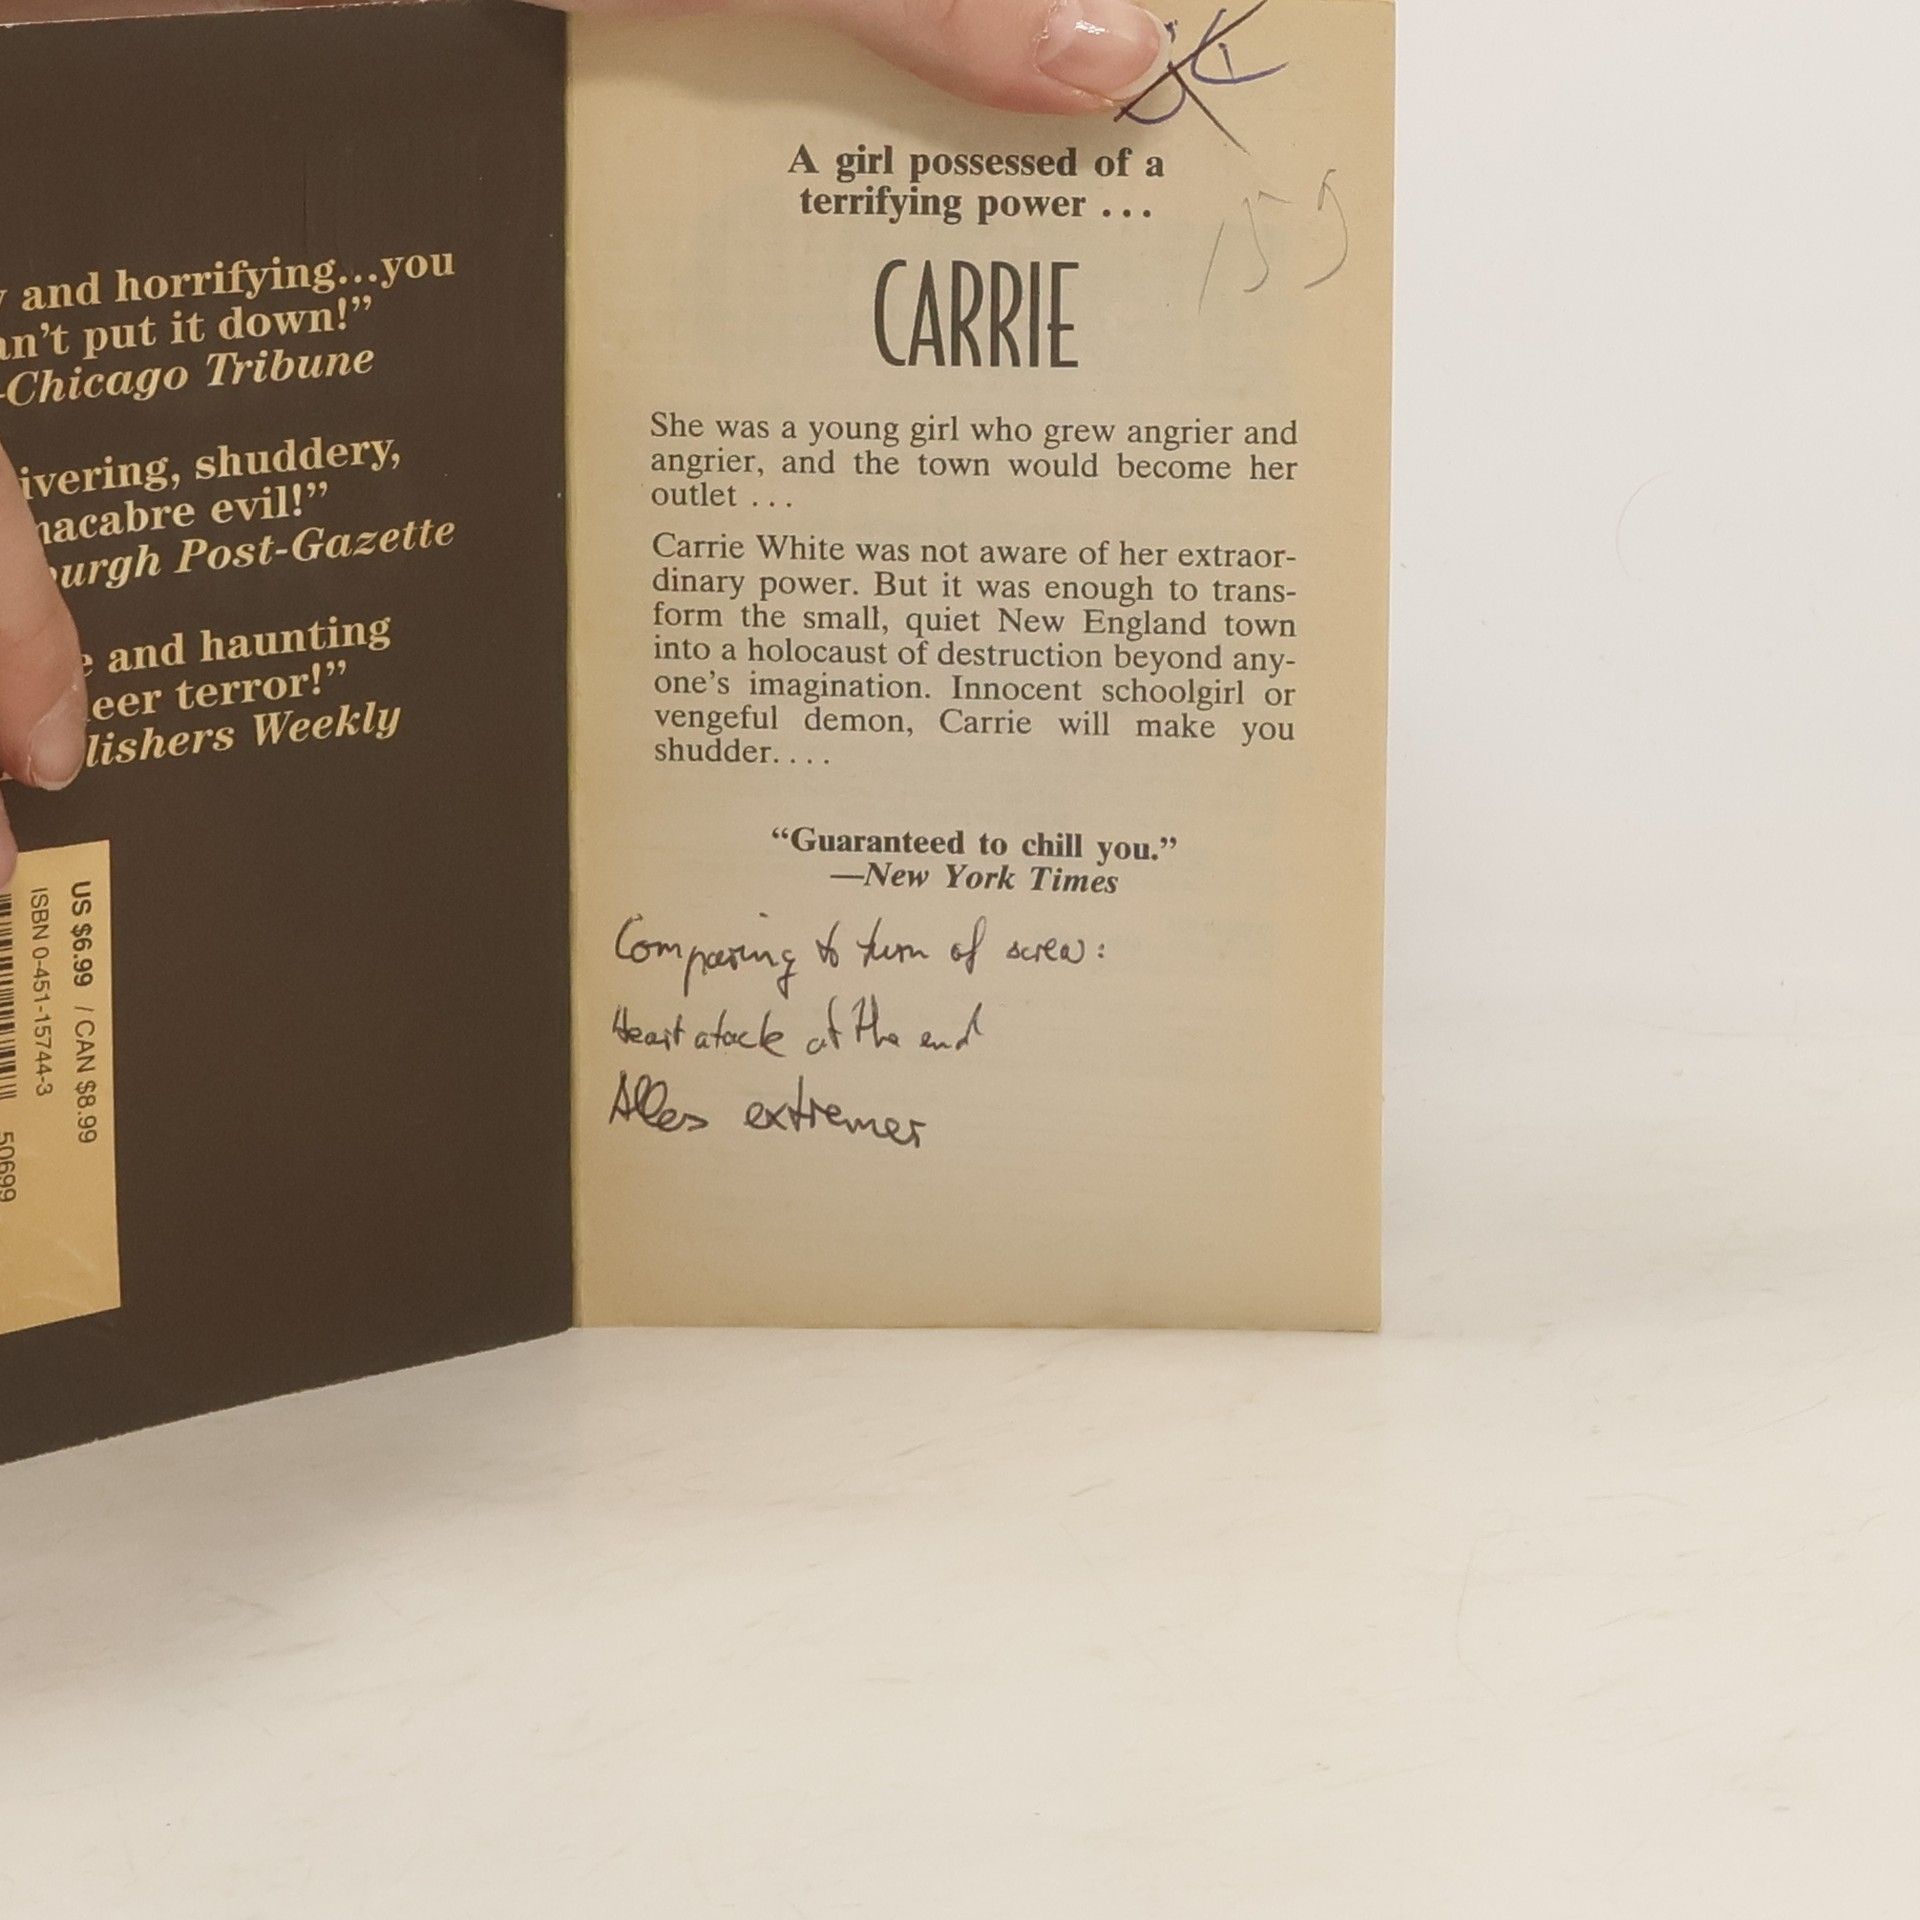 and horrifying...you
an't put it down!”
-Chicago Tribune
ivering, shuddery,
acabre evil!”
urgh Post-Gazette
e and haunting
eer terror!”
lishers Weekly
US $6.99 / CAN $8.99
ISBN 0-451-15744-3
50699
159
A girl possessed of a
terrifying power . . .
CARRIE
She was a young girl who grew angrier and
angrier, and the town would become her
outlet . . .
Carrie White was not aware of her extraor-
dinary power. But it was enough to trans-
form the small, quiet New England town
into a holocaust of destruction beyond any-
one’s imagination. Innocent schoolgirl or
vengeful demon, Carrie will make you
shudder. . . .
“Guaranteed to chill you.”
—New York Times
Comparing to turn of screw:
Heart atack at the end
Alles extremer